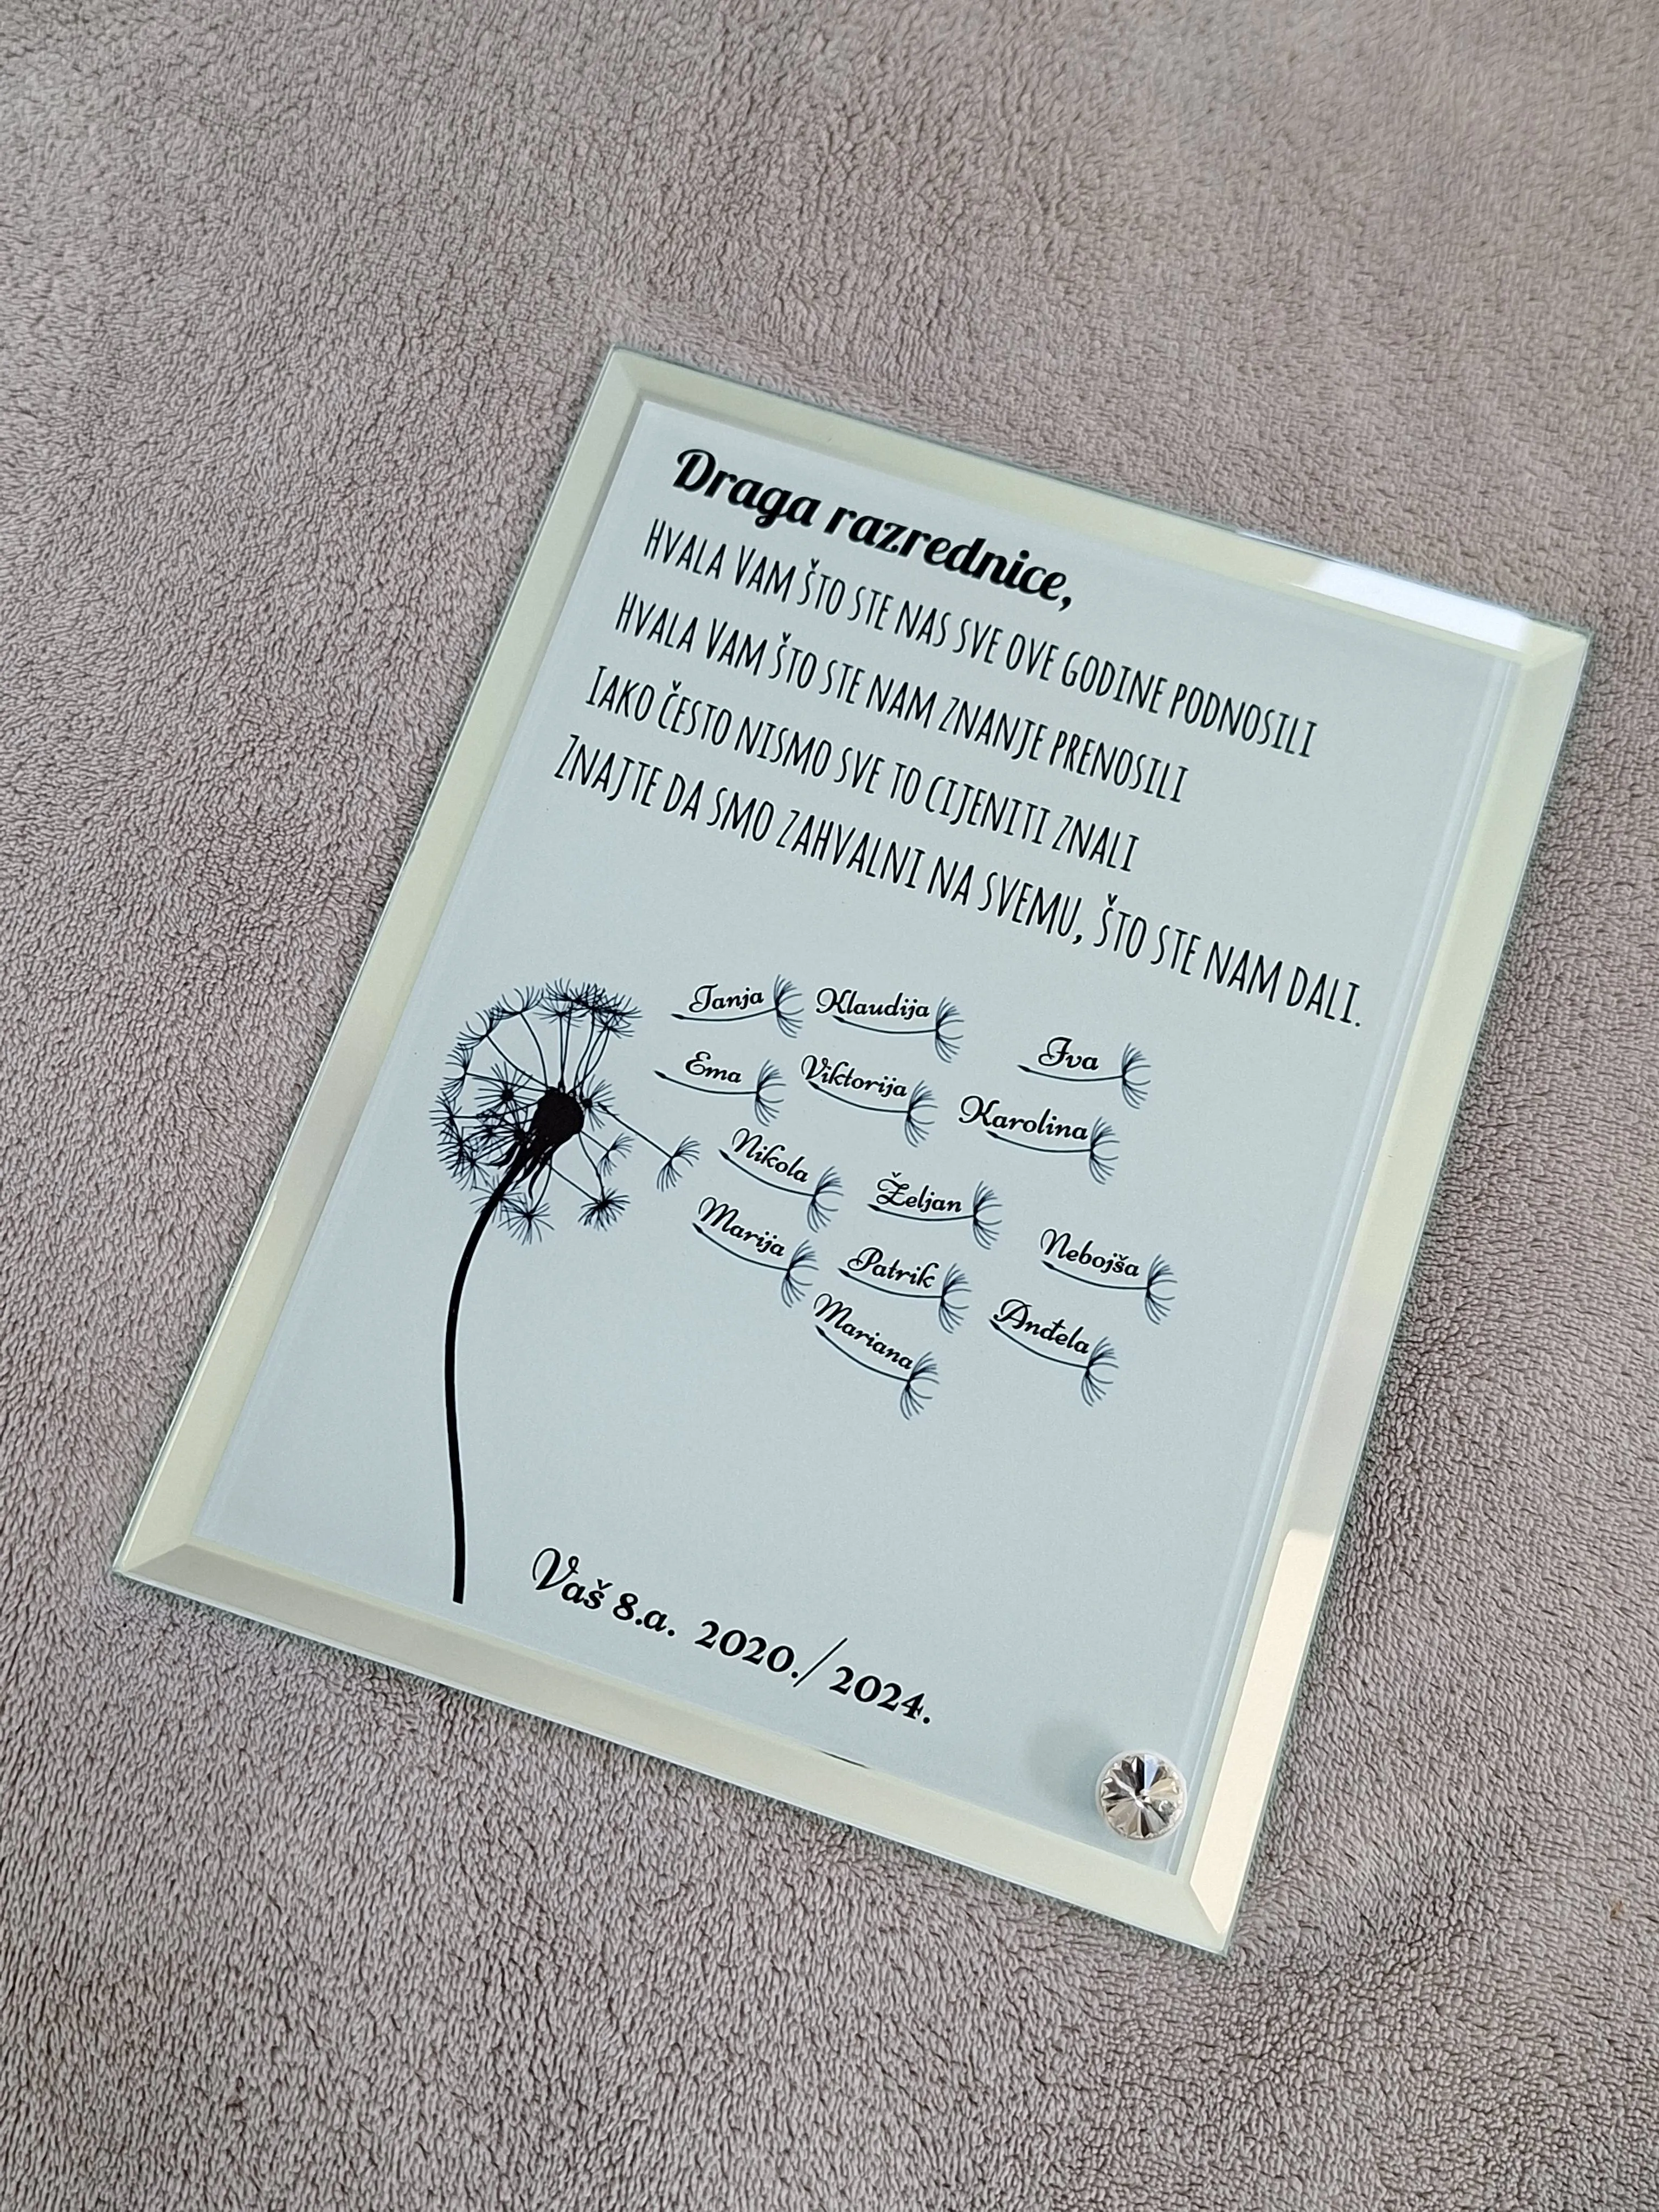 Draga razrednice,
Hvala Vam što ste nas sve ove godine podnosili
Hvala Vam što ste nam znanje prenosili
Iako često nismo sve to cijeniti znali
Znajte da smo zahvalni na svemu, što ste nam dali.
Tanja Klaudija
Iva
Ema Viktorija
Karolina
Nikola
Željan
Marija
Nebojša
Patrik
Anđela
Mariana
Vaš 8.a. 2020./2024.